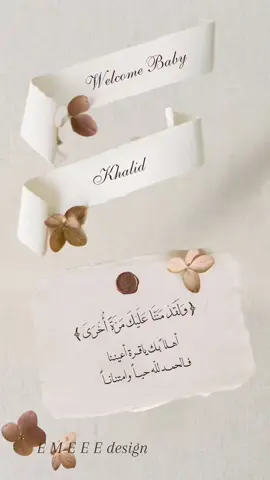 Welcome Baby
Khalid
﴿ وَلَقَدْ مَنَنَّا عَلَيْكَ مَرَّةً أُخْرَىٰ ﴾
أهلا بك ياقرة أعيننا
فالحمد لله حباً وامتناناً
E M E E E design